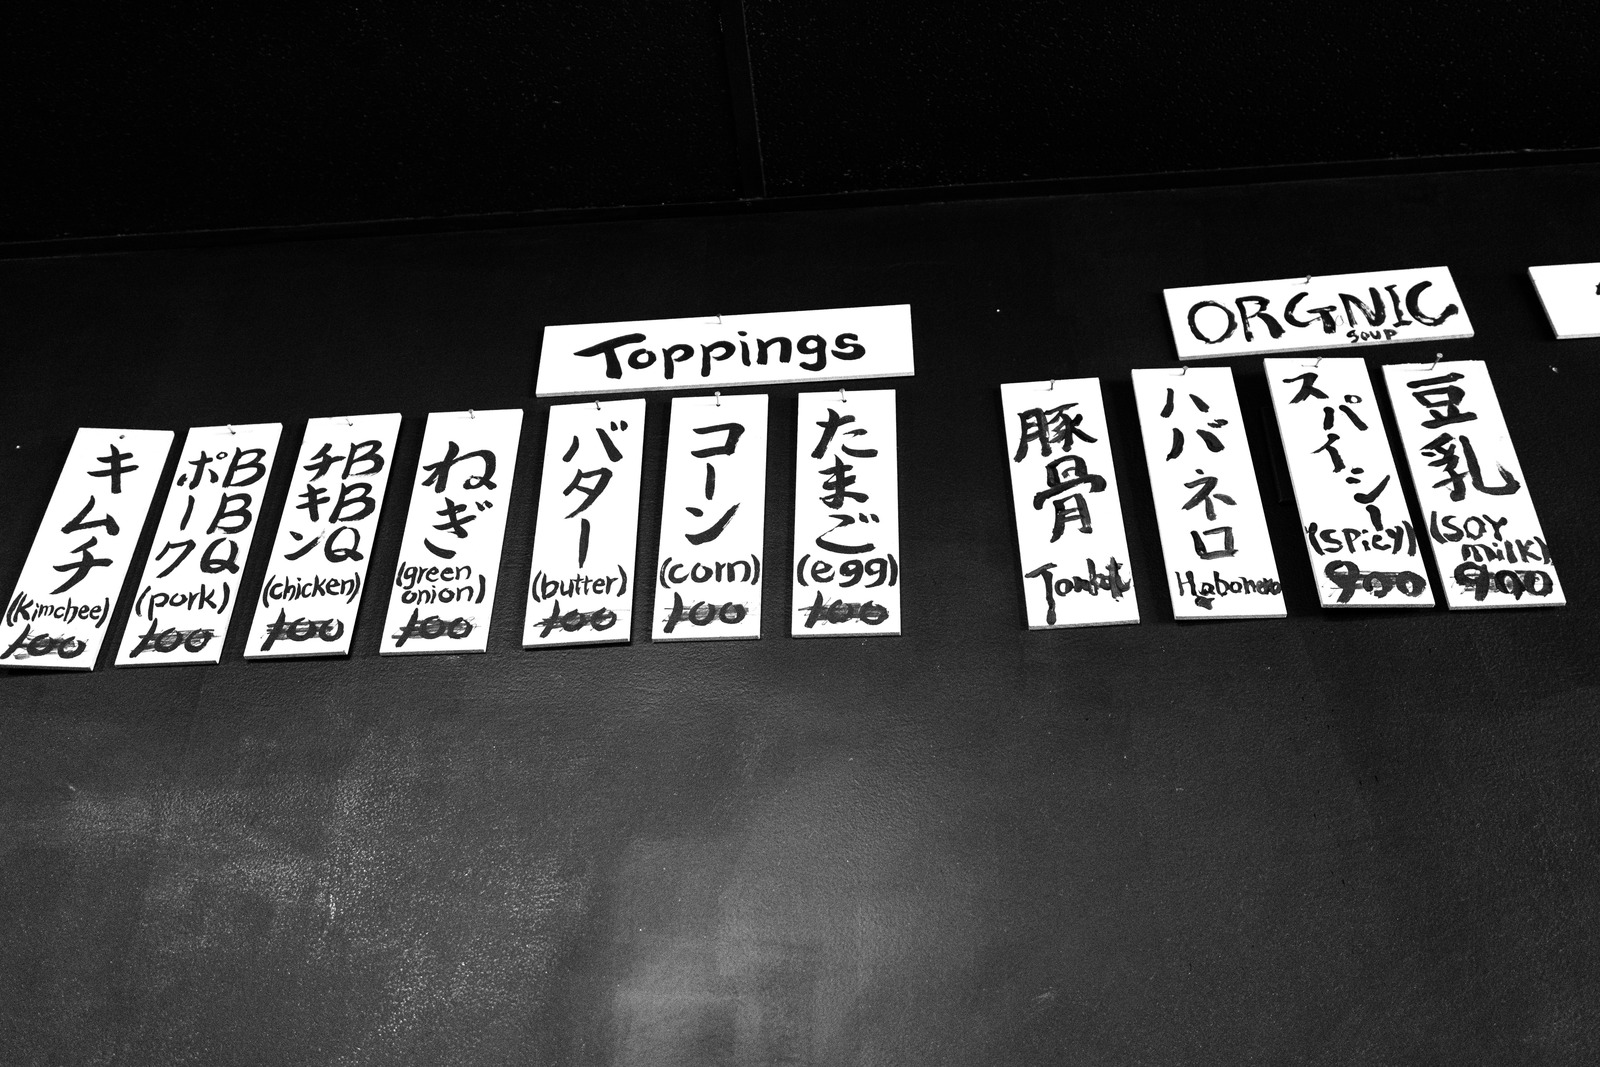 Toppings
キムチ
(Kimchee)
100
BBQ
ポーク
(pork)
100
BBQ
チキン
(chicken)
100
ねぎ
(green
onion)
100
バター
(butter)
100
コーン
(corn)
100
たまご
(egg)
100
ORGNIC
soup
豚骨
ハバネロ
Habanero
スパイシー
(spicy)
900
豆乳
(SOY
milk)
900